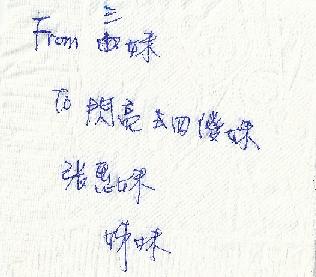 From 三
妹
To 閃亮
四傻妹
張惠妹
姊妹